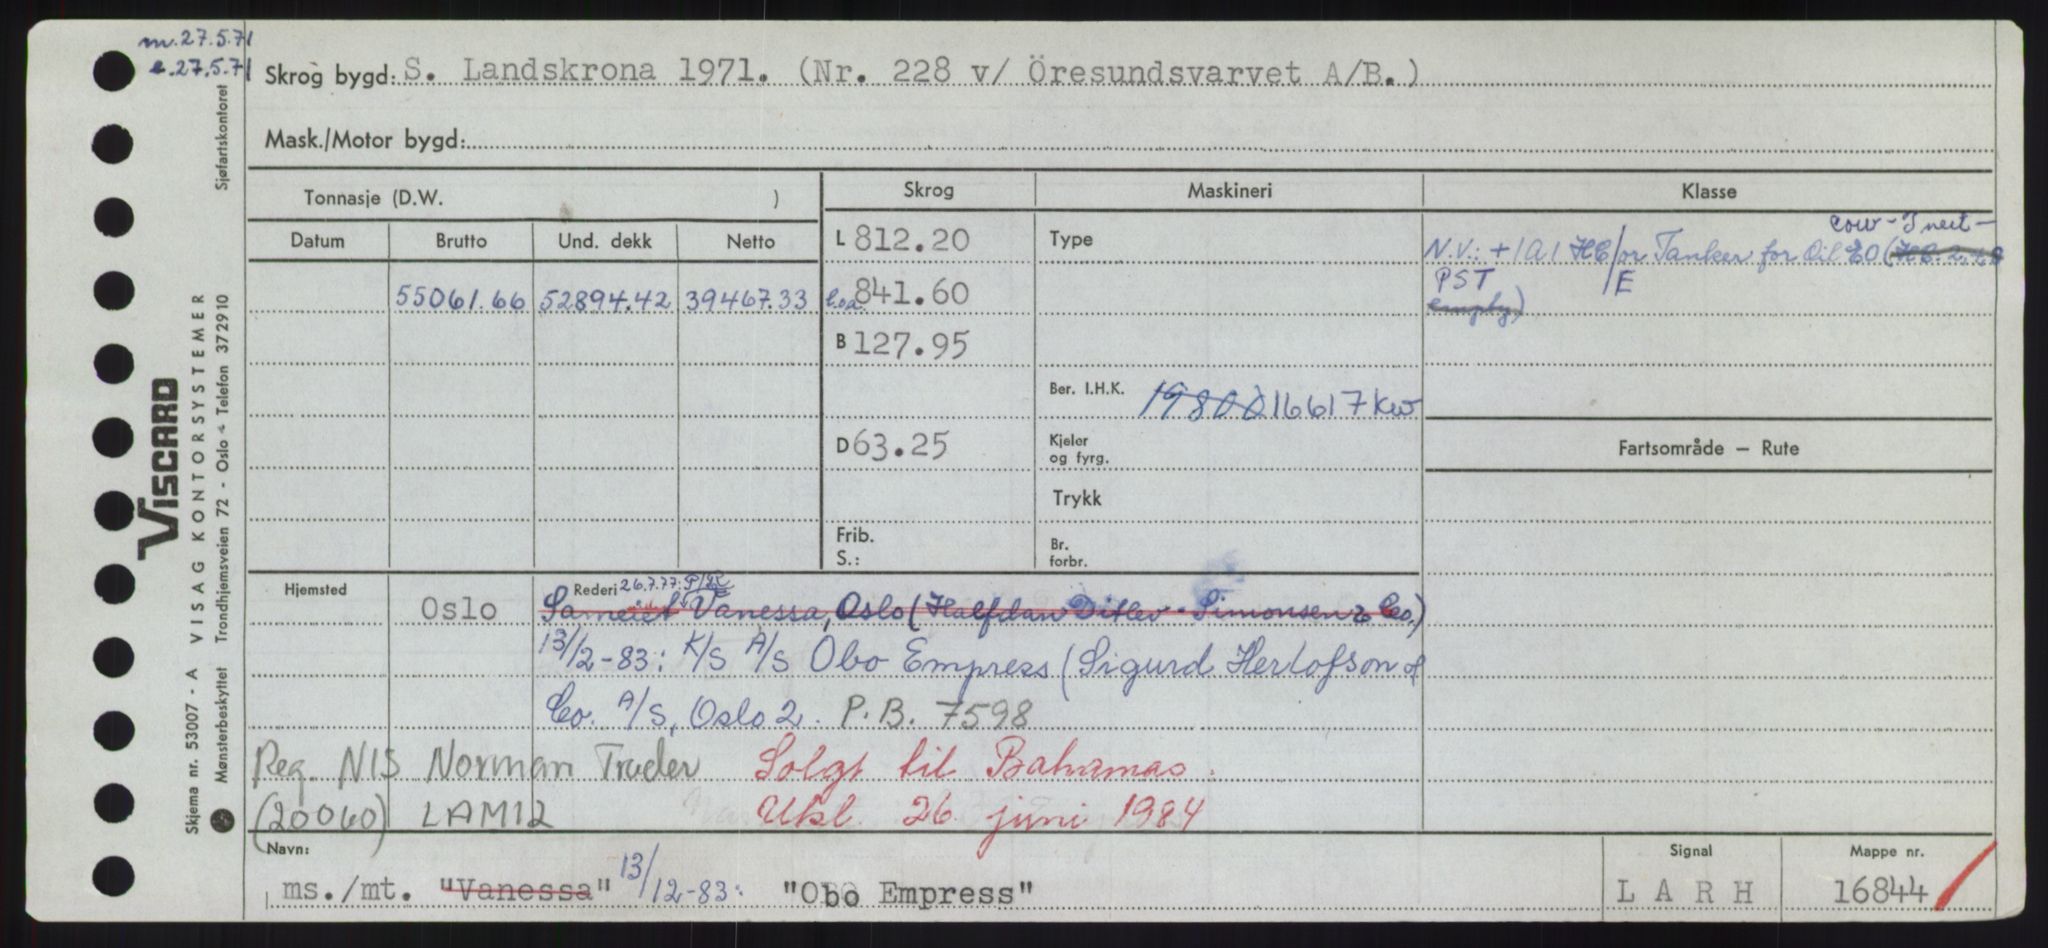 m.27.5.71
e.27.5.71
Sjøfartskontoret
Skrog bygd: S. Landskrona 1971. (Nr. 228 v/ Öresundsvarvet A/B.)
Mask./Motor bygd:
Tonnasje (D.W. )
Skrog
Maskineri
Klasse
Datum
Brutto
Und. dekk
Netto
55061.66
52894.42
39467.33
L 812.20
l.o.a. 841.60
B 127.95
D 63.25
Frib.
S.:
Type
Ber. I.H.K. 19800 16617 kw
Kjeler
og fyrg.
Trykk
Br.
forbr.
cow - Inert -
N.V.: + 1A1 HC/or Tanker for Oil EO (HC. 2,
PST /E
empty)
Fartsområde — Rute
Hjemsted
Oslo
Rederi 26.7.77: P/R
Sameiet Vanessa, Oslo (Halfdan Ditlev-Simonsen & Co.)
13/12-83: K/S A/S Obo Empress (Sigurd Herlofson &
Co. A/S, Oslo 2. P.B. 7598
Reg. NIS Norman Trader Solgt til Bahamas.
(20060) LAMI2 Utsl. 26. juni 1984
Navn:
ms./mt. "Vanessa" 13/12-83: "Obo Empress"
Signal
LARH
Mappe nr.
16844
VISCARD
VISAG KONTORSYSTEMER
Trondhjemsveien 72 - Oslo - Telefon 372910
Skjema nr. 53007 - A
Mønsterbeskyttet